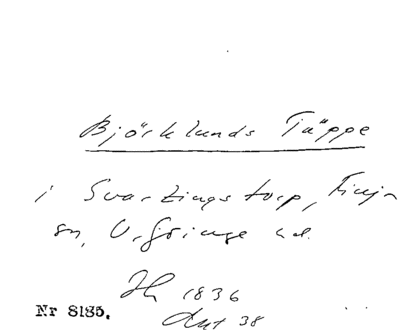 Björklunds Täppe
i Svartingstorp, Finja
sn, V. Göinge hd.
1836
Nr 8185. Akt 38